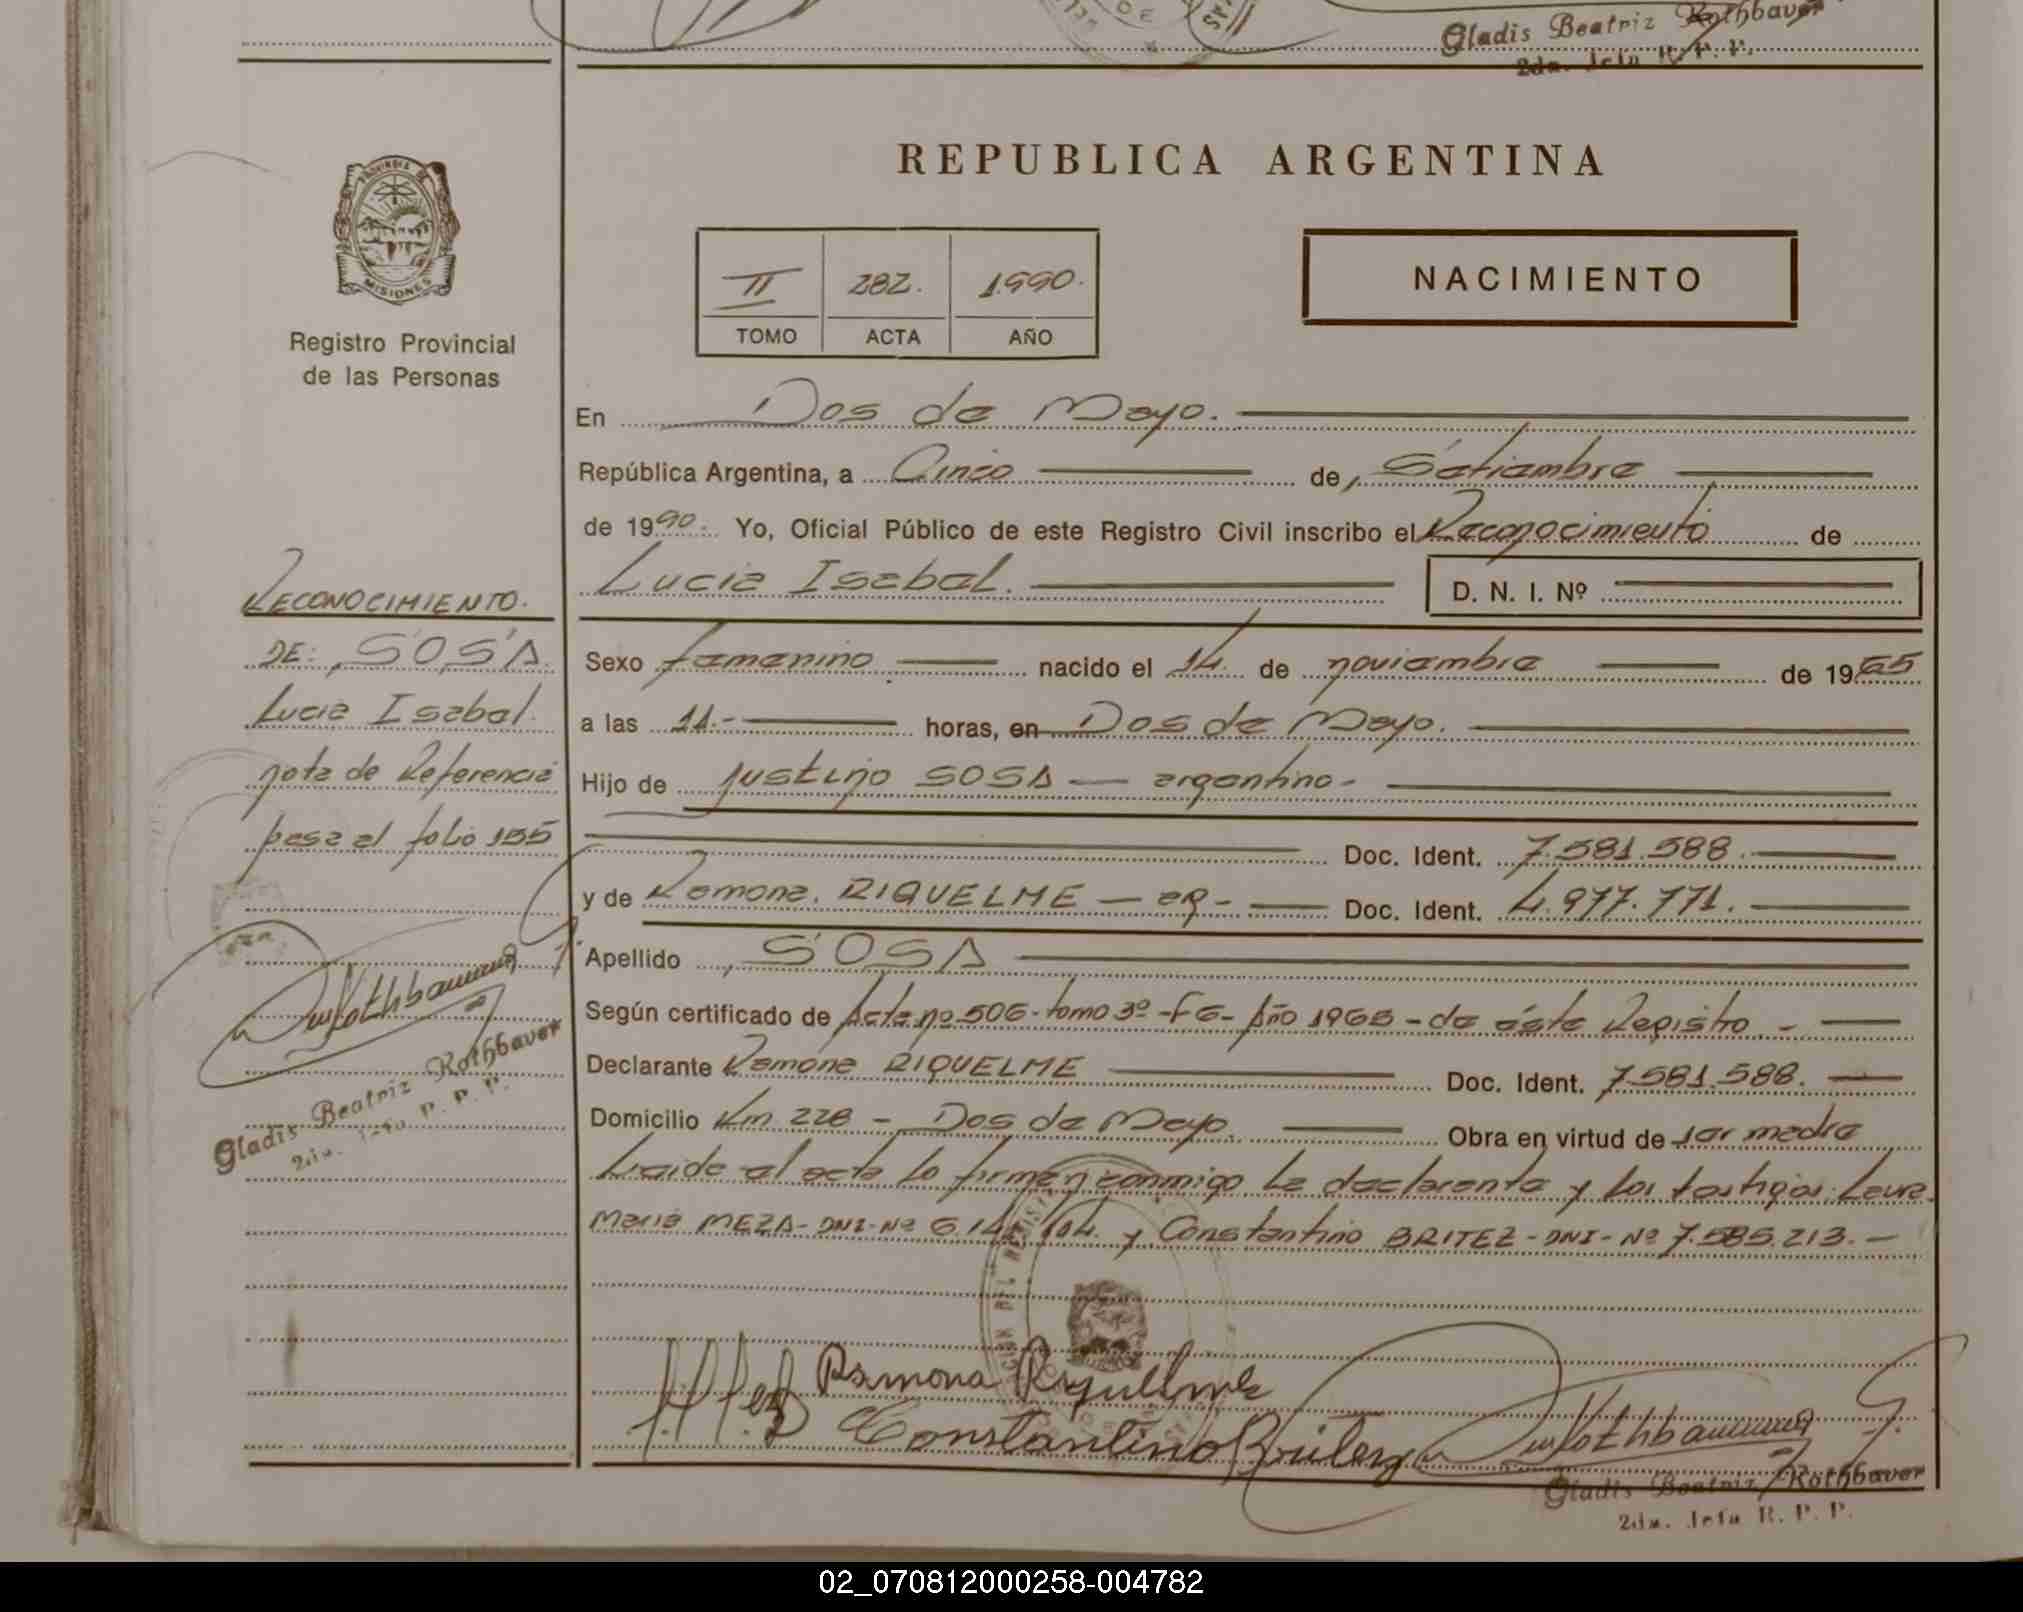 Gladis Beatriz Rothbaver
2da. Jefa R. P. P.
REPUBLICA ARGENTINA
PROVINCIA DE
MISIONES
Registro Provincial
de las Personas
II 282. 1990.
TOMO ACTA AÑO
NACIMIENTO
En Dos de Mayo.
República Argentina, a Cinco de Setiembre
de 1990. Yo, Oficial Público de este Registro Civil inscribo el Reconocimiento de
Lucia Isabel. D. N. I. Nº
RECONOCIMIENTO.
DE: SOSA
Lucia Isabel.
nota de Referencia
pasa al folio 155
Gladis Beatriz Rothbaver
2da. Jefa R. P. P.
Sexo femenino nacido el 14. de noviembre de 1965
a las 11.- horas, en Dos de Mayo.
Hijo de Justino SOSA — argentino-
Doc. Ident. 7.581.588.
y de Ramona. RIQUELME — ar- Doc. Ident. 4.977.771.
Apellido SOSA
Según certificado de Acta nº 506- tomo 3º -F6- Año 1965 - de éste Registro -
Declarante Ramona RIQUELME Doc. Ident. 7.581.588.
Domicilio Km 228 - Dos de Mayo. Obra en virtud de ser madre
Leida el acta lo firman conmigo la declarante y los testigos: Laura
Maria MEZA- DNI-Nº 6.14 104. y Constantino BRITEZ - DNI - Nº 7.585.213.-
Ramona Riquelme
Constantino Britez
Gladis Beatriz Rothbaver
2da. Jefa R. P. P.
02_070812000258-004782